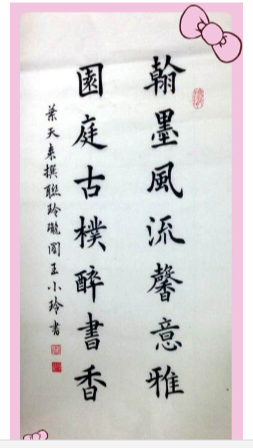 翰墨風流馨意雅
園庭古樸醉書香
葉天來撰聯玲瓏閣王小玲書